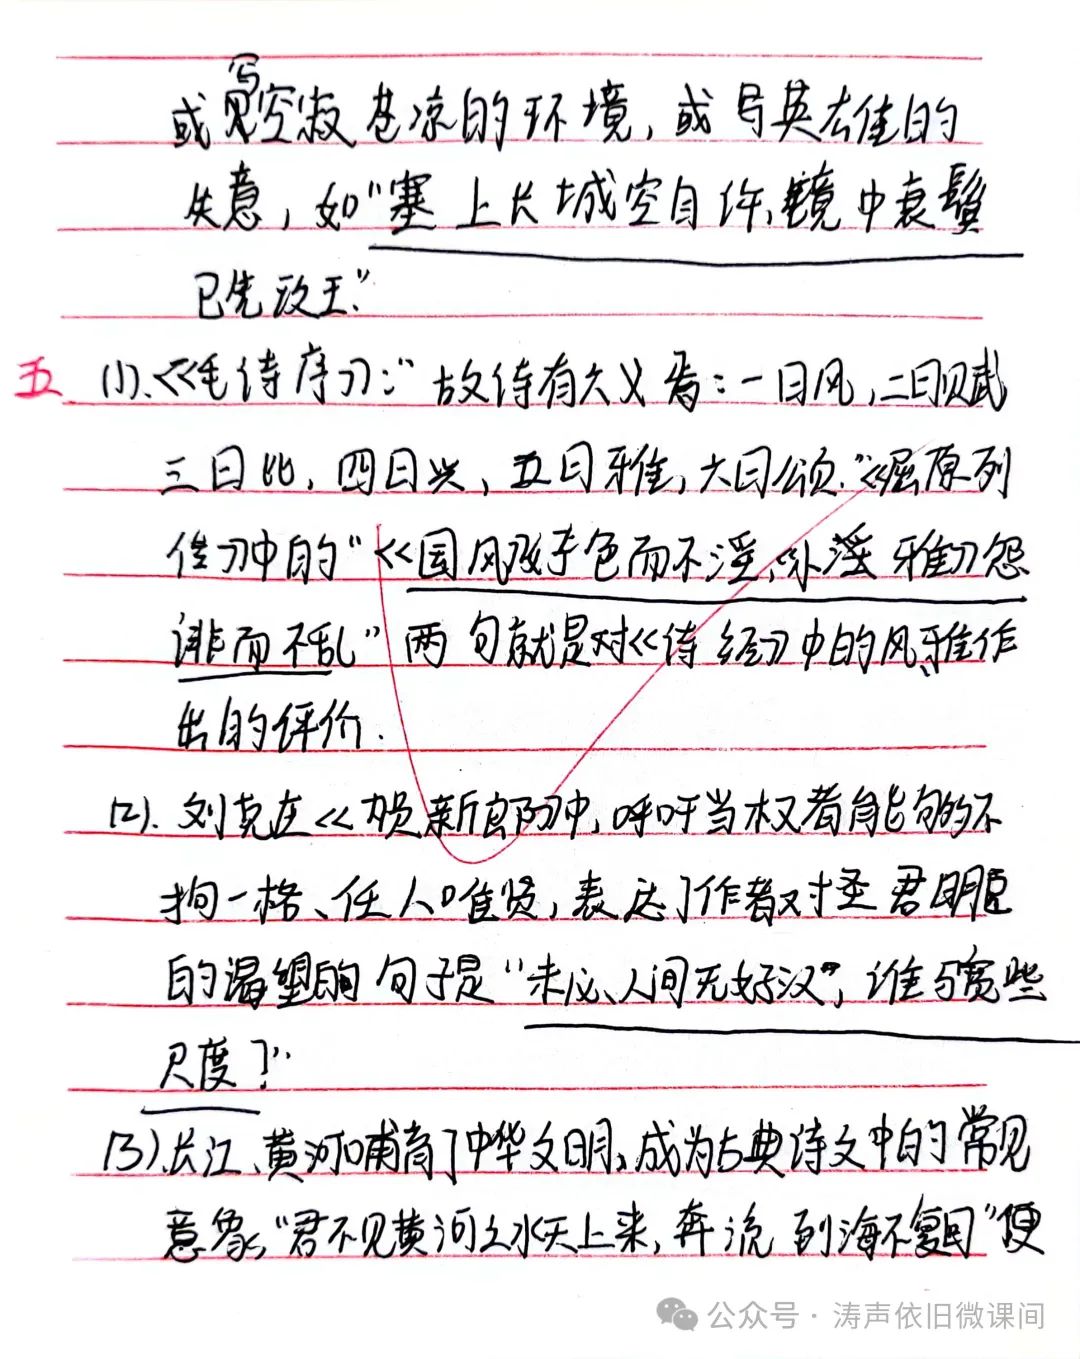 写
或见空寂苍凉的环境，或写英雄的
失意，如“塞上长城空自许，镜中衰鬓
已先斑”。
五 (1)、《毛诗序》：“故诗有六义焉：一曰风，二曰赋
三曰比，四曰兴，五曰雅，六曰颂.”《屈原列
传》中的“《国风》好色而不淫，《小淫 雅》怨
诽而不乱”两句就是对《诗经》中的风、雅作
出的评价.
(2). 刘克在《贺新郎》中，呼吁当权者能够的不
拘一格、任人唯贤，表达了作者对圣君明臣
的渴望的句子是“未必人间无好汉”，谁与宽些
尺度？”
(3)、长江、黄河哺育了中华文明，成为古典诗文中的常见
意象，“君不见黄河之水天上来，奔流到海不复回”便
公众号·涛声依旧微课间